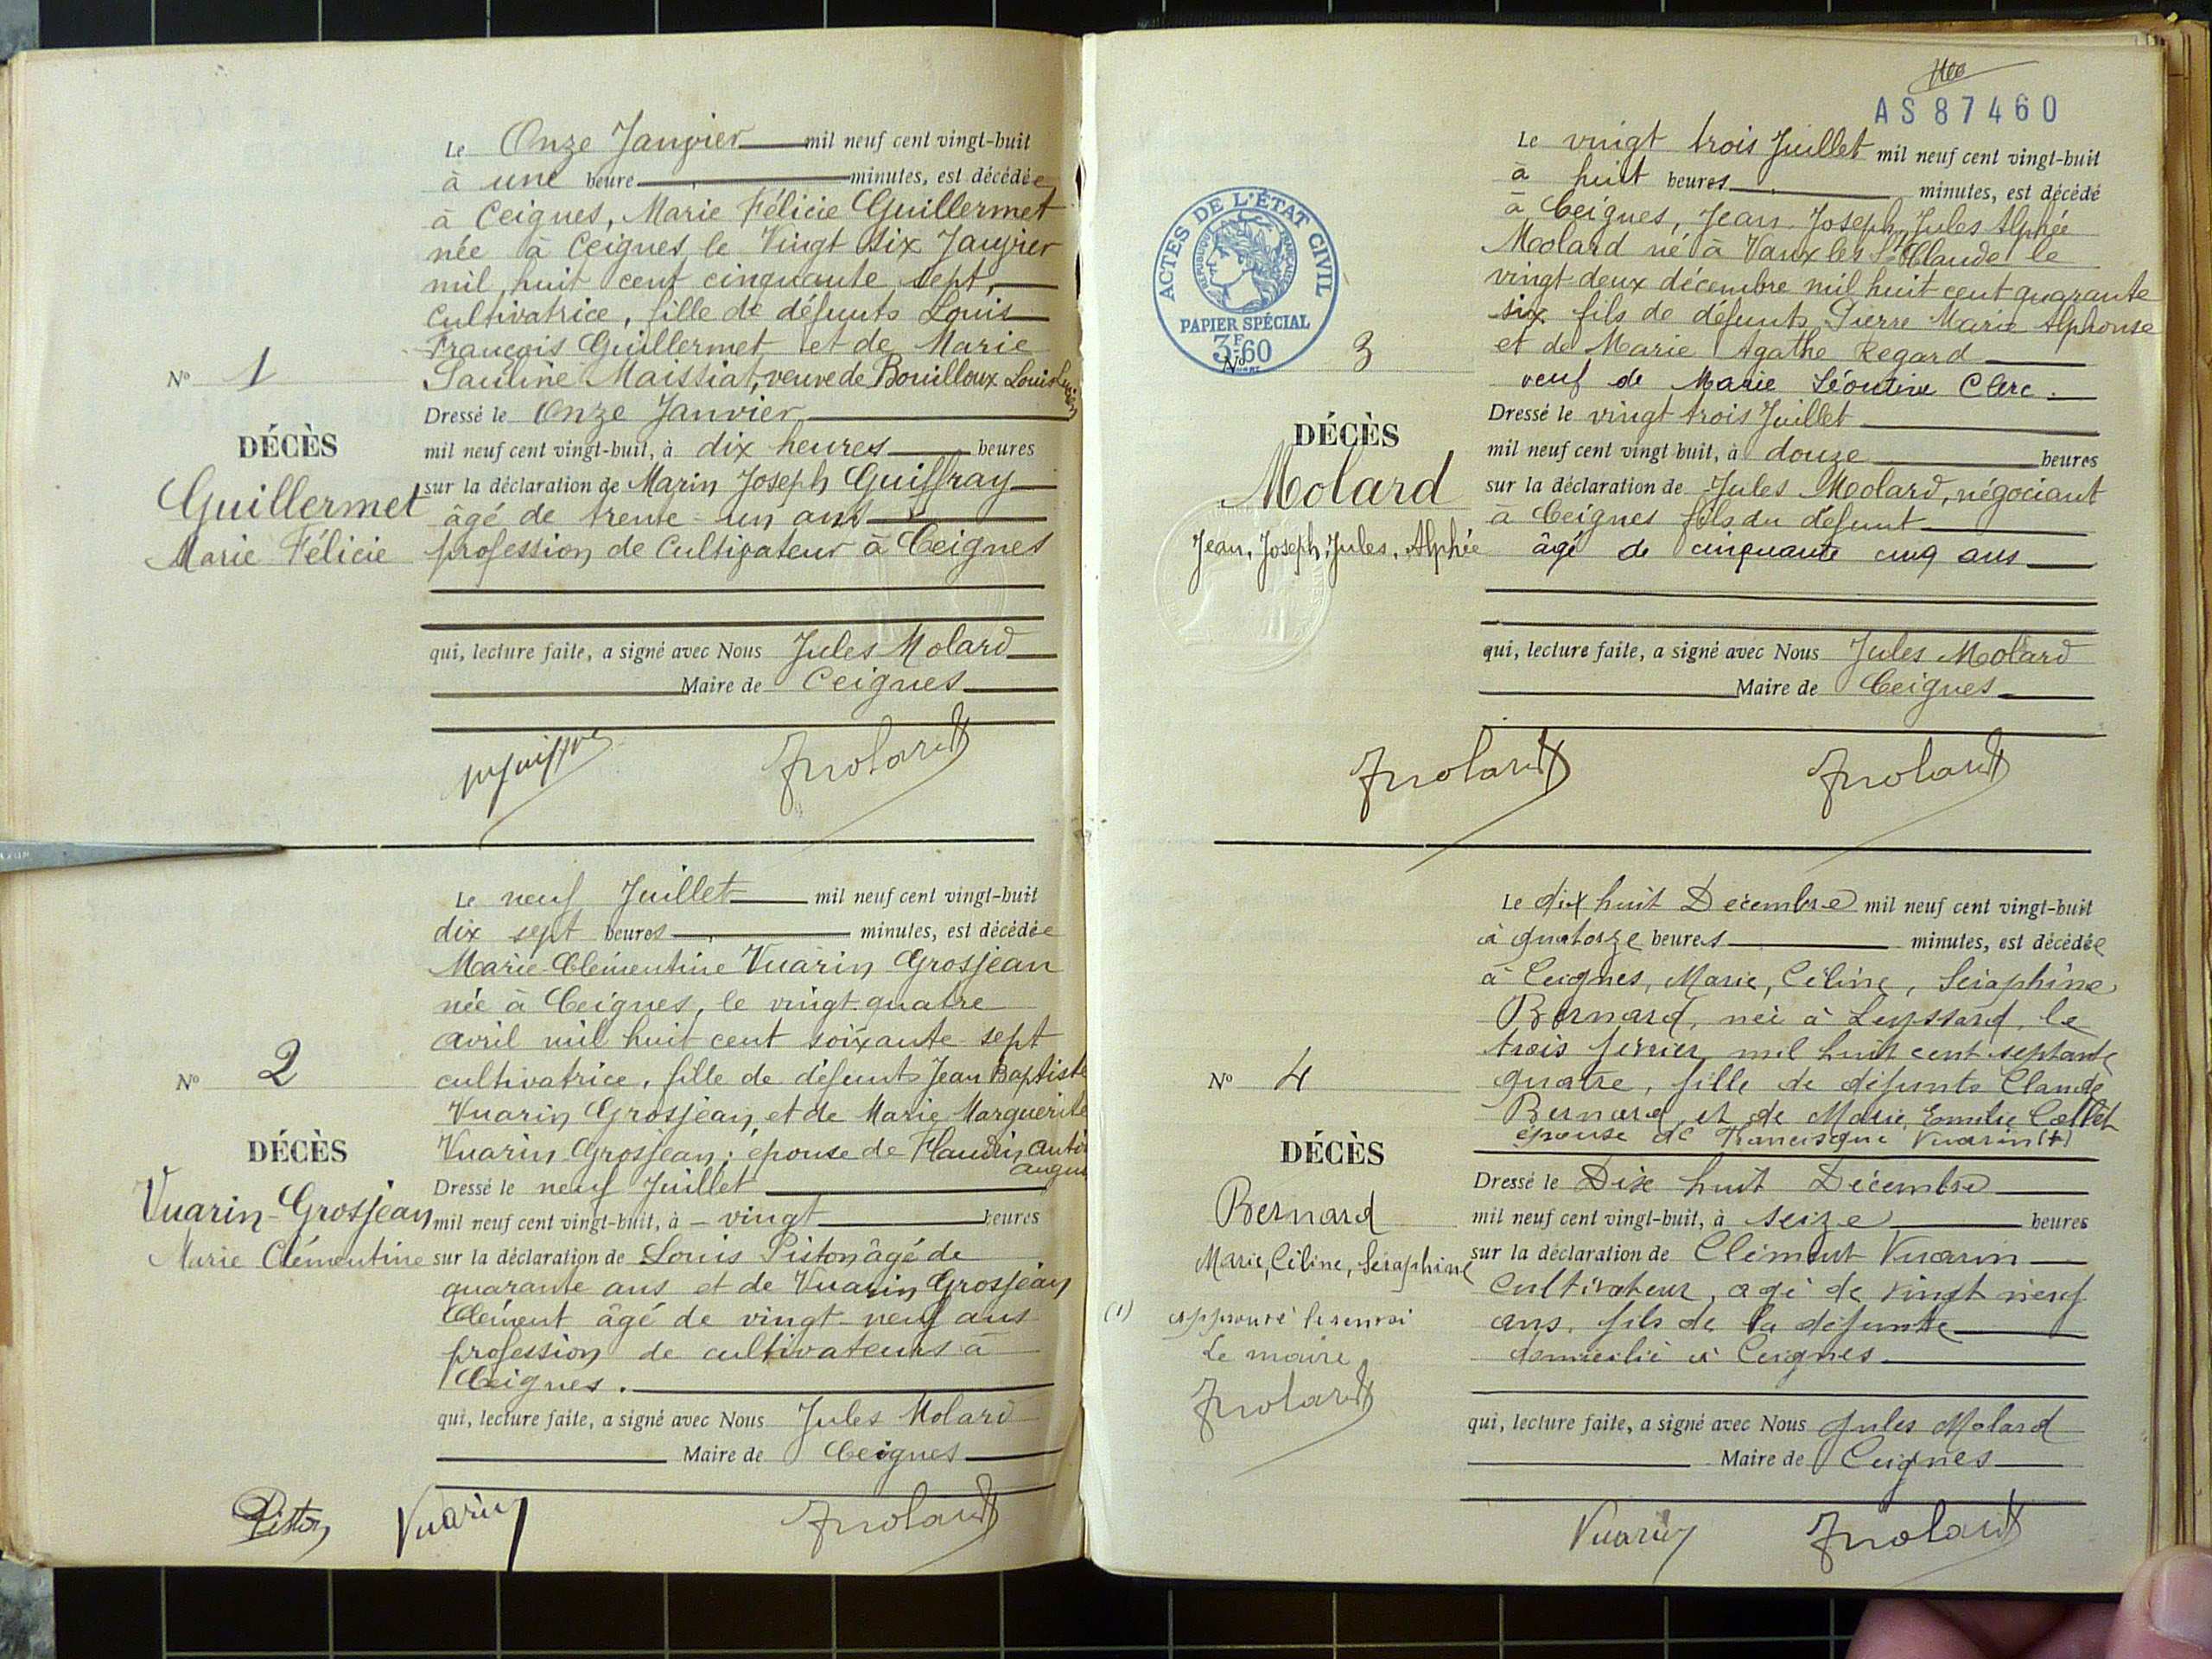 Le Onze Janvier mil neuf cent vingt-huit
à une heure minutes, est décédée
à Ceignes, Marie Félicie Guillermet
née à Ceignes le Vingt six Janvier
mil huit cent cinquante sept,
cultivatrice, fille de défunts Louis
François Guillermet et de Marie
Pauline Maissiat, veuve de Bouilloux Louis
Nº 1
Dressé le Onze Janvier
DÉCÈS
mil neuf cent vingt-huit, à dix heures heures
Guillermet
sur la déclaration de Marin Joseph Guiffray
âgé de trente-un ans
Marie Félicie
profession de Cultivateur à Ceignes
qui, lecture faite, a signé avec Nous Jules Molard
Maire de Ceignes
JMolard
Le neuf Juillet mil neuf cent vingt-huit
dix sept heures minutes, est décédée
Marie-Clémentine Vuarin Grosjean
née à Ceignes, le vingt-quatre
avril mil huit cent soixante-sept
cultivatrice, fille de défunts Jean Baptiste
Nº 2
Vuarin Grosjean et de Marie Marguerite
DÉCÈS
Vuarin Grosjean; épouse de Flaudin
Dressé le neuf Juillet
Vuarin-Grosjean
mil neuf cent vingt-huit, à - vingt heures
Marie Clémentine
sur la déclaration de Louis Piston âgé de
quarante ans et de Vuarin Grosjean
Clément âgé de vingt-neuf ans
profession de cultivateurs à
Ceignes.
qui, lecture faite, a signé avec Nous Jules Molard
Maire de Ceignes
Piston Vuarin JMolard
AS87460
Le vingt trois Juillet mil neuf cent vingt-huit
à huit heures minutes, est décédé
à Ceignes, Jean Joseph, Jules Alphée
Molard né à Vaux les St Claude le
vingt-deux décembre mil huit cent quarante
six fils de défunts Pierre Marie Alphonse
et de Marie Agathe Regard
veuf de Marie Léontine Clerc.
ACTES DE L'ÉTAT CIVIL
RÉPUBLIQUE FRANÇAISE
PAPIER SPÉCIAL
3F.60
Nº 3
Dressé le vingt trois Juillet
DÉCÈS
mil neuf cent vingt huit, à douze heures
Molard
sur la déclaration de Jules Molard, négociant
à Ceignes fils du défunt
Jean, Joseph, Jules, Alphée
âgé de cinquante cinq ans
qui, lecture faite, a signé avec Nous Jules Molard
Maire de Ceignes
JMolard JMolard
Le dix huit Décembre mil neuf cent vingt-huit
à quatorze heures minutes, est décédée
à Ceignes, Marie, Céline, Séraphine
Bernard, née à Leyssard, le
trois février mil huit cent septante
Nº 4
quatre, fille de défunts Claude
Bernard et de Marie Emilie Collet
épouse de Francisque Vuarin (+)
DÉCÈS
Dressé le Dix huit Décembre
Bernard
mil neuf cent vingt-huit, à seize heures
Marie, Céline, Séraphine
sur la déclaration de Clément Vuarin
cultivateur, agé de vingt neuf
(1) approuvé le renvoi
ans, fils de la défunte
Le maire
domicilié à Ceignes
JMolard
qui, lecture faite, a signé avec Nous Jules Molard
Maire de Ceignes
Vuarin JMolard